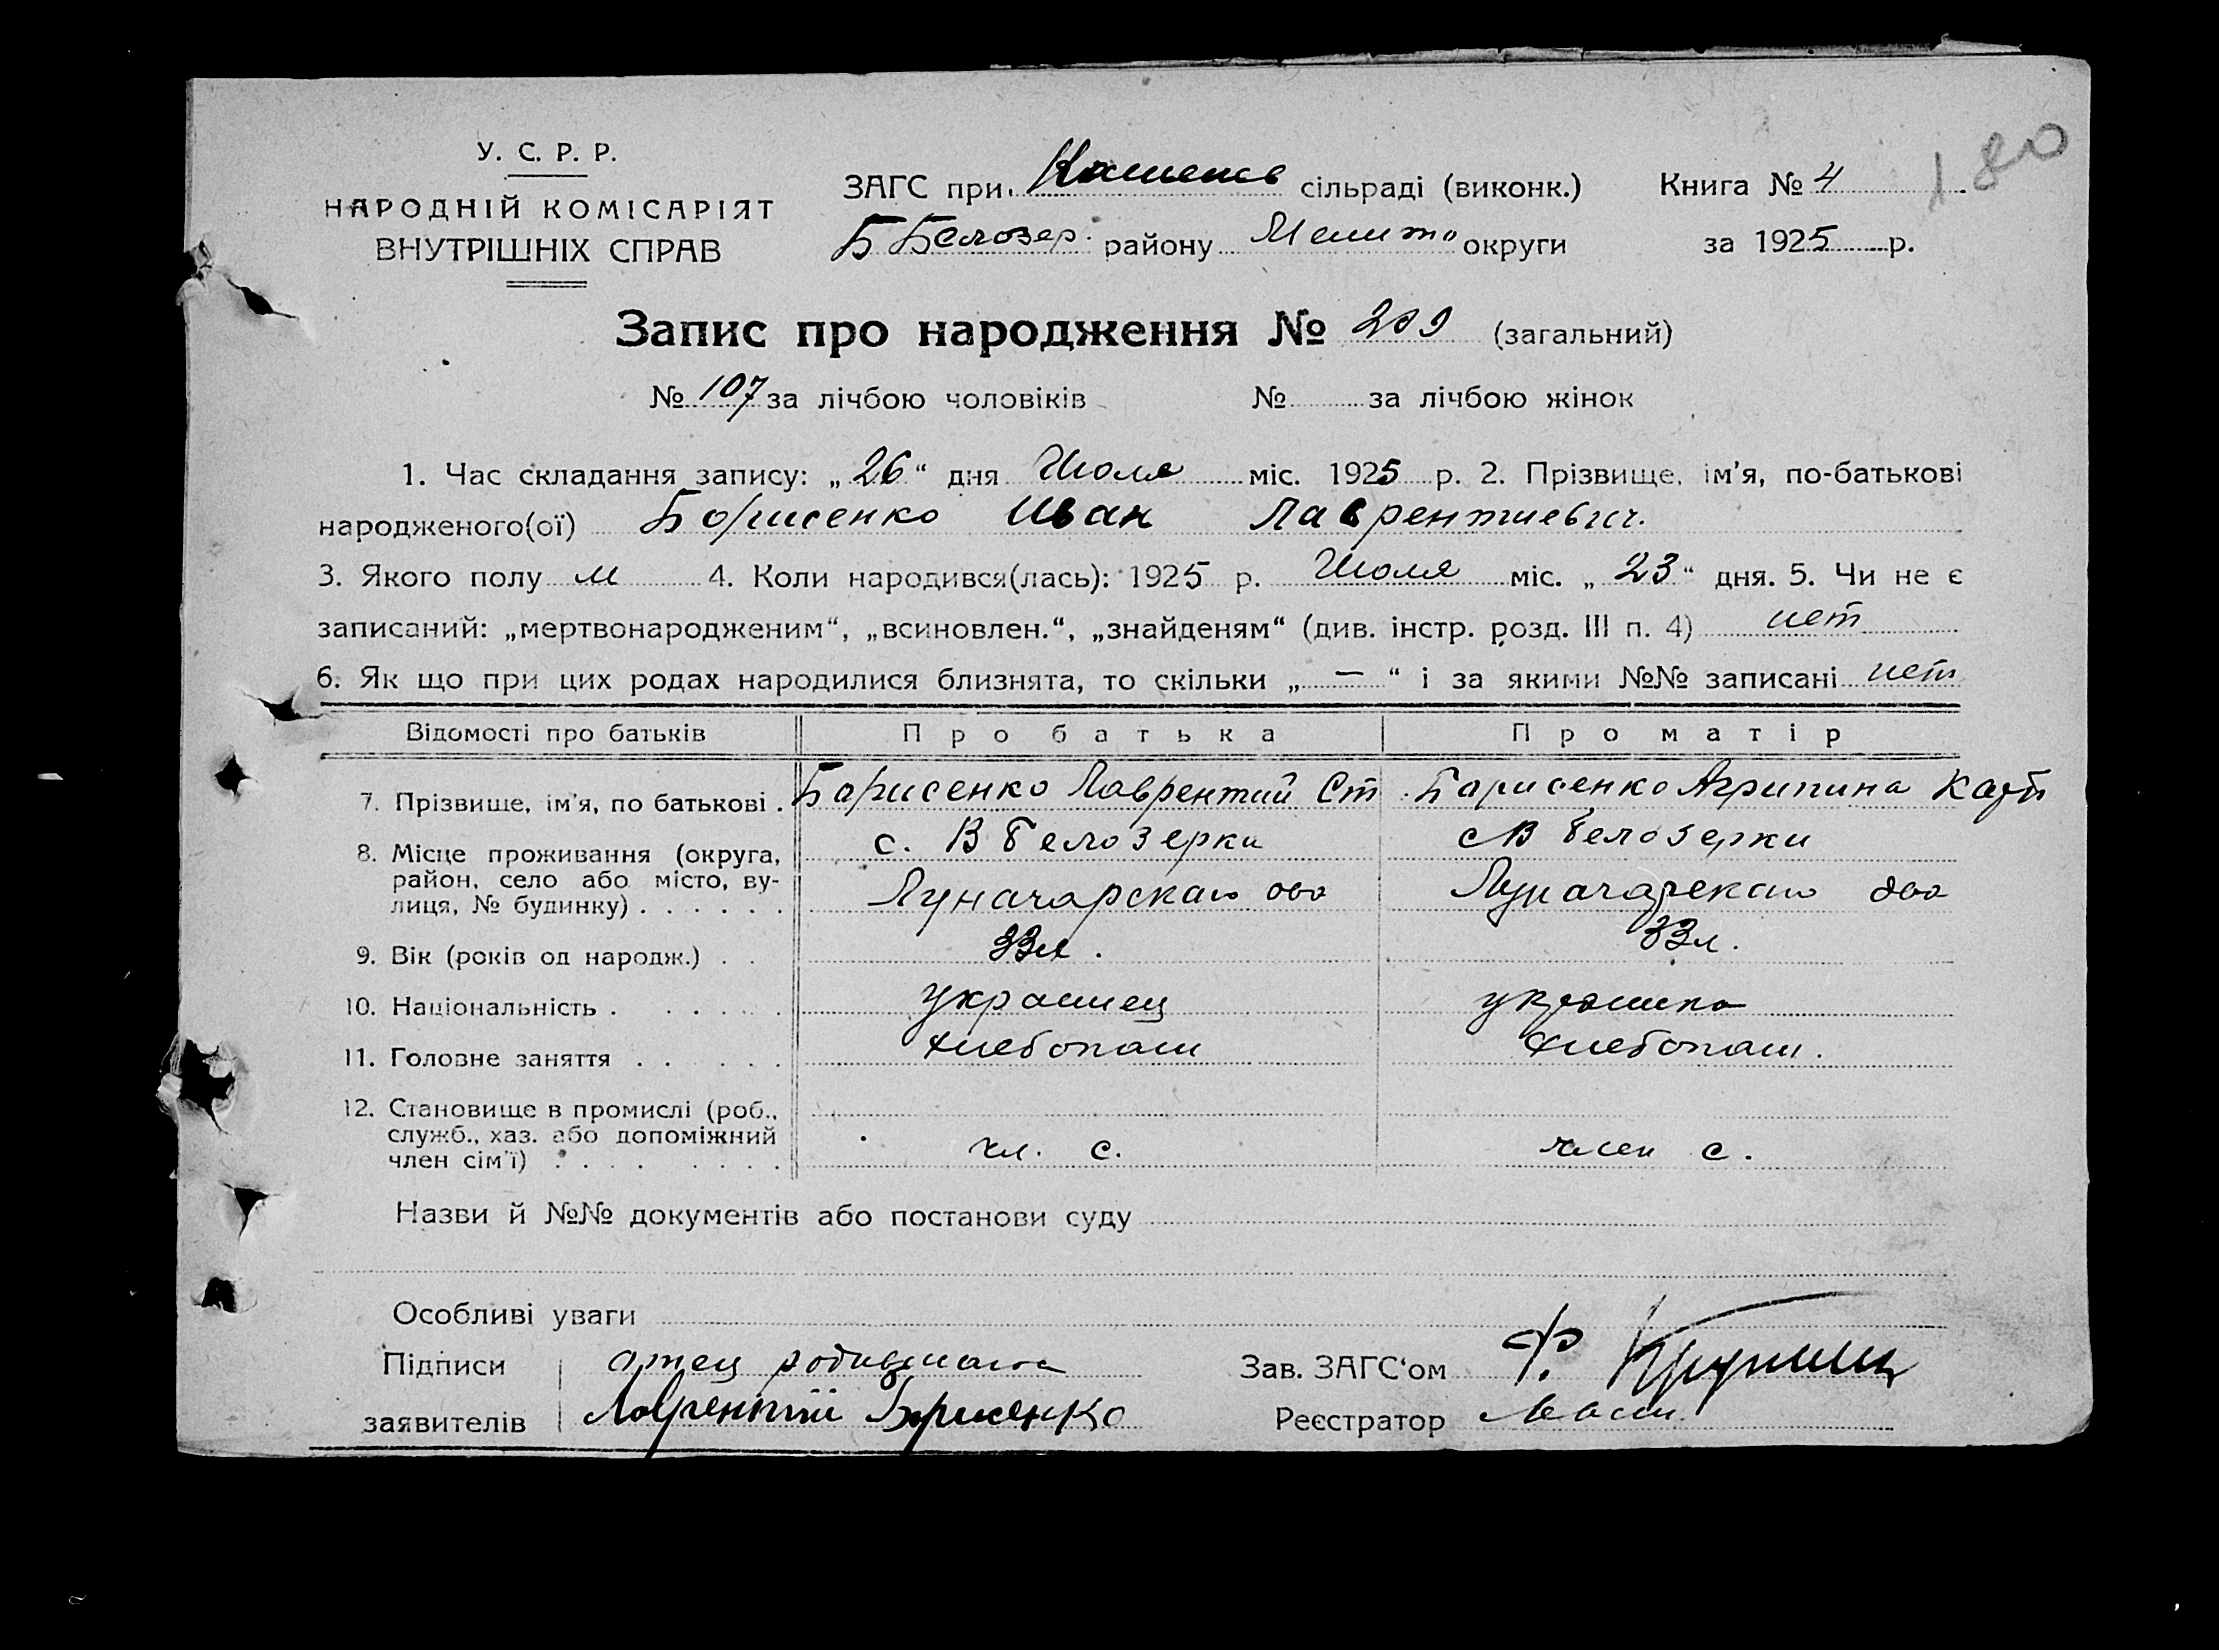 180
У. С. Р. Р.
НАРОДНІЙ КОМІСАРІЯТ
ВНУТРІШНІХ СПРАВ
ЗАГС при сільраді (виконк.) Книга № 4
Б Белозер. району Мелито округи за 1925 р.
Запис про народження № 209 (загальний)
№ 107 за лічбою чоловіків № за лічбою жінок
1. Час складання запису: „26“ дня Июля міс. 1925 р. 2. Прізвище, ім'я, по-батькові
народженого(ої) Борисенко Иван Лаврентиевич.
3. Якого полу м 4. Коли народився(лась): 1925 р. Июля міс. „23“ дня. 5. Чи не є
записаний: „мертвонародженим“, „всиновлен.“, „знайденям“ (див. інстр. розд. III п. 4) нет
6. Як що при цих родах народилися близнята, то скільки „ — “ і за якими №№ записані нет
Відомості про батьків Про батька Про матір
7. Прізвище, ім'я, по батькові . Борисенко Лаврентий Ст Борисенко Агрипина Карп
8. Місце проживання (округа, с. В Белозерка с В Белозерки
район, село або місто, ву- Луначарскаго Луначарскаго
лиця, № будинку) . . . . . .
9. Вік (років од народж.) . . 33л. 33л.
10. Національність . . . . . . украинец украинка
11. Головне заняття . . . . . хлебопаш хлебопаш.
12. Становище в промислі (роб.,
служб., хаз. або допоміжний чл. с. член с.
член сім'ї) . . . . . . . .
Назви й №№ документів або постанови суду
Особливі уваги
Підписи отец родившагося Зав. ЗАГС'ом Ф.
заявителів Лаврентій Борисенко Реєстратор